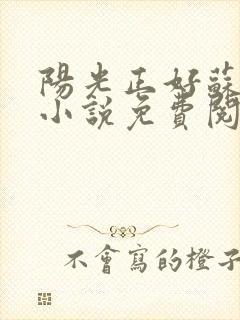 陽光正好蘇
小說免費閱
不會寫的橙子